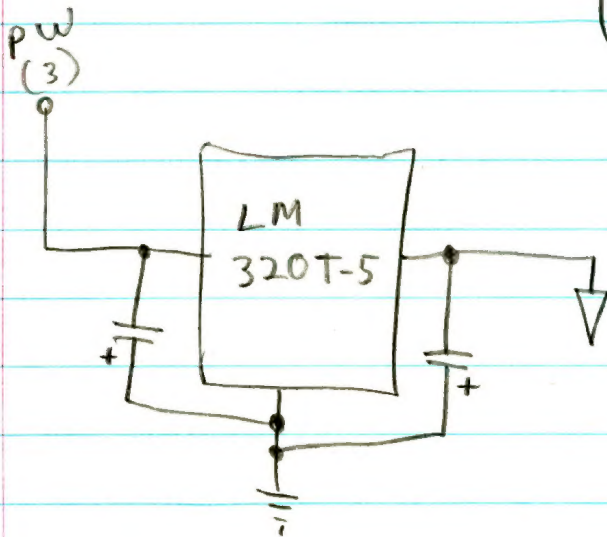 PW
(3)
LM
320T-5
+
+